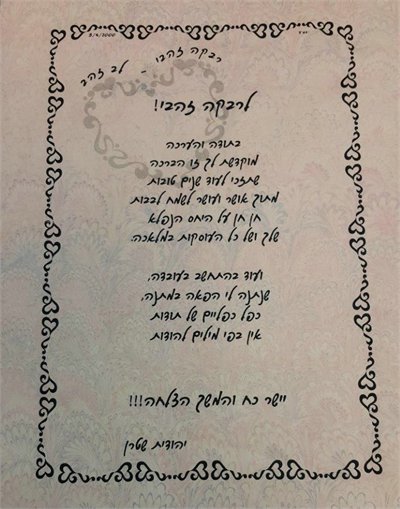 5/4/2000
בס"ד
רבקה זהבי - לב זהב
לרבקה זהבי!
בתודה והערכה
מוקדשת לך זו הברכה
שתזכי לעוד שנים טובות
מתוך אושר ועושר לשמח לבבות
חן חן על היחס הנפלא
שלך ושל כל העוסקות במלאכה.
ועוד בהתחשב בעובדה,
שנתנה לי הפאה במתנה,
כפל כפליים של תודות
אין בפי מילים להודות
יישר כח והמשך הצלחה!!!
יהודית שטרן